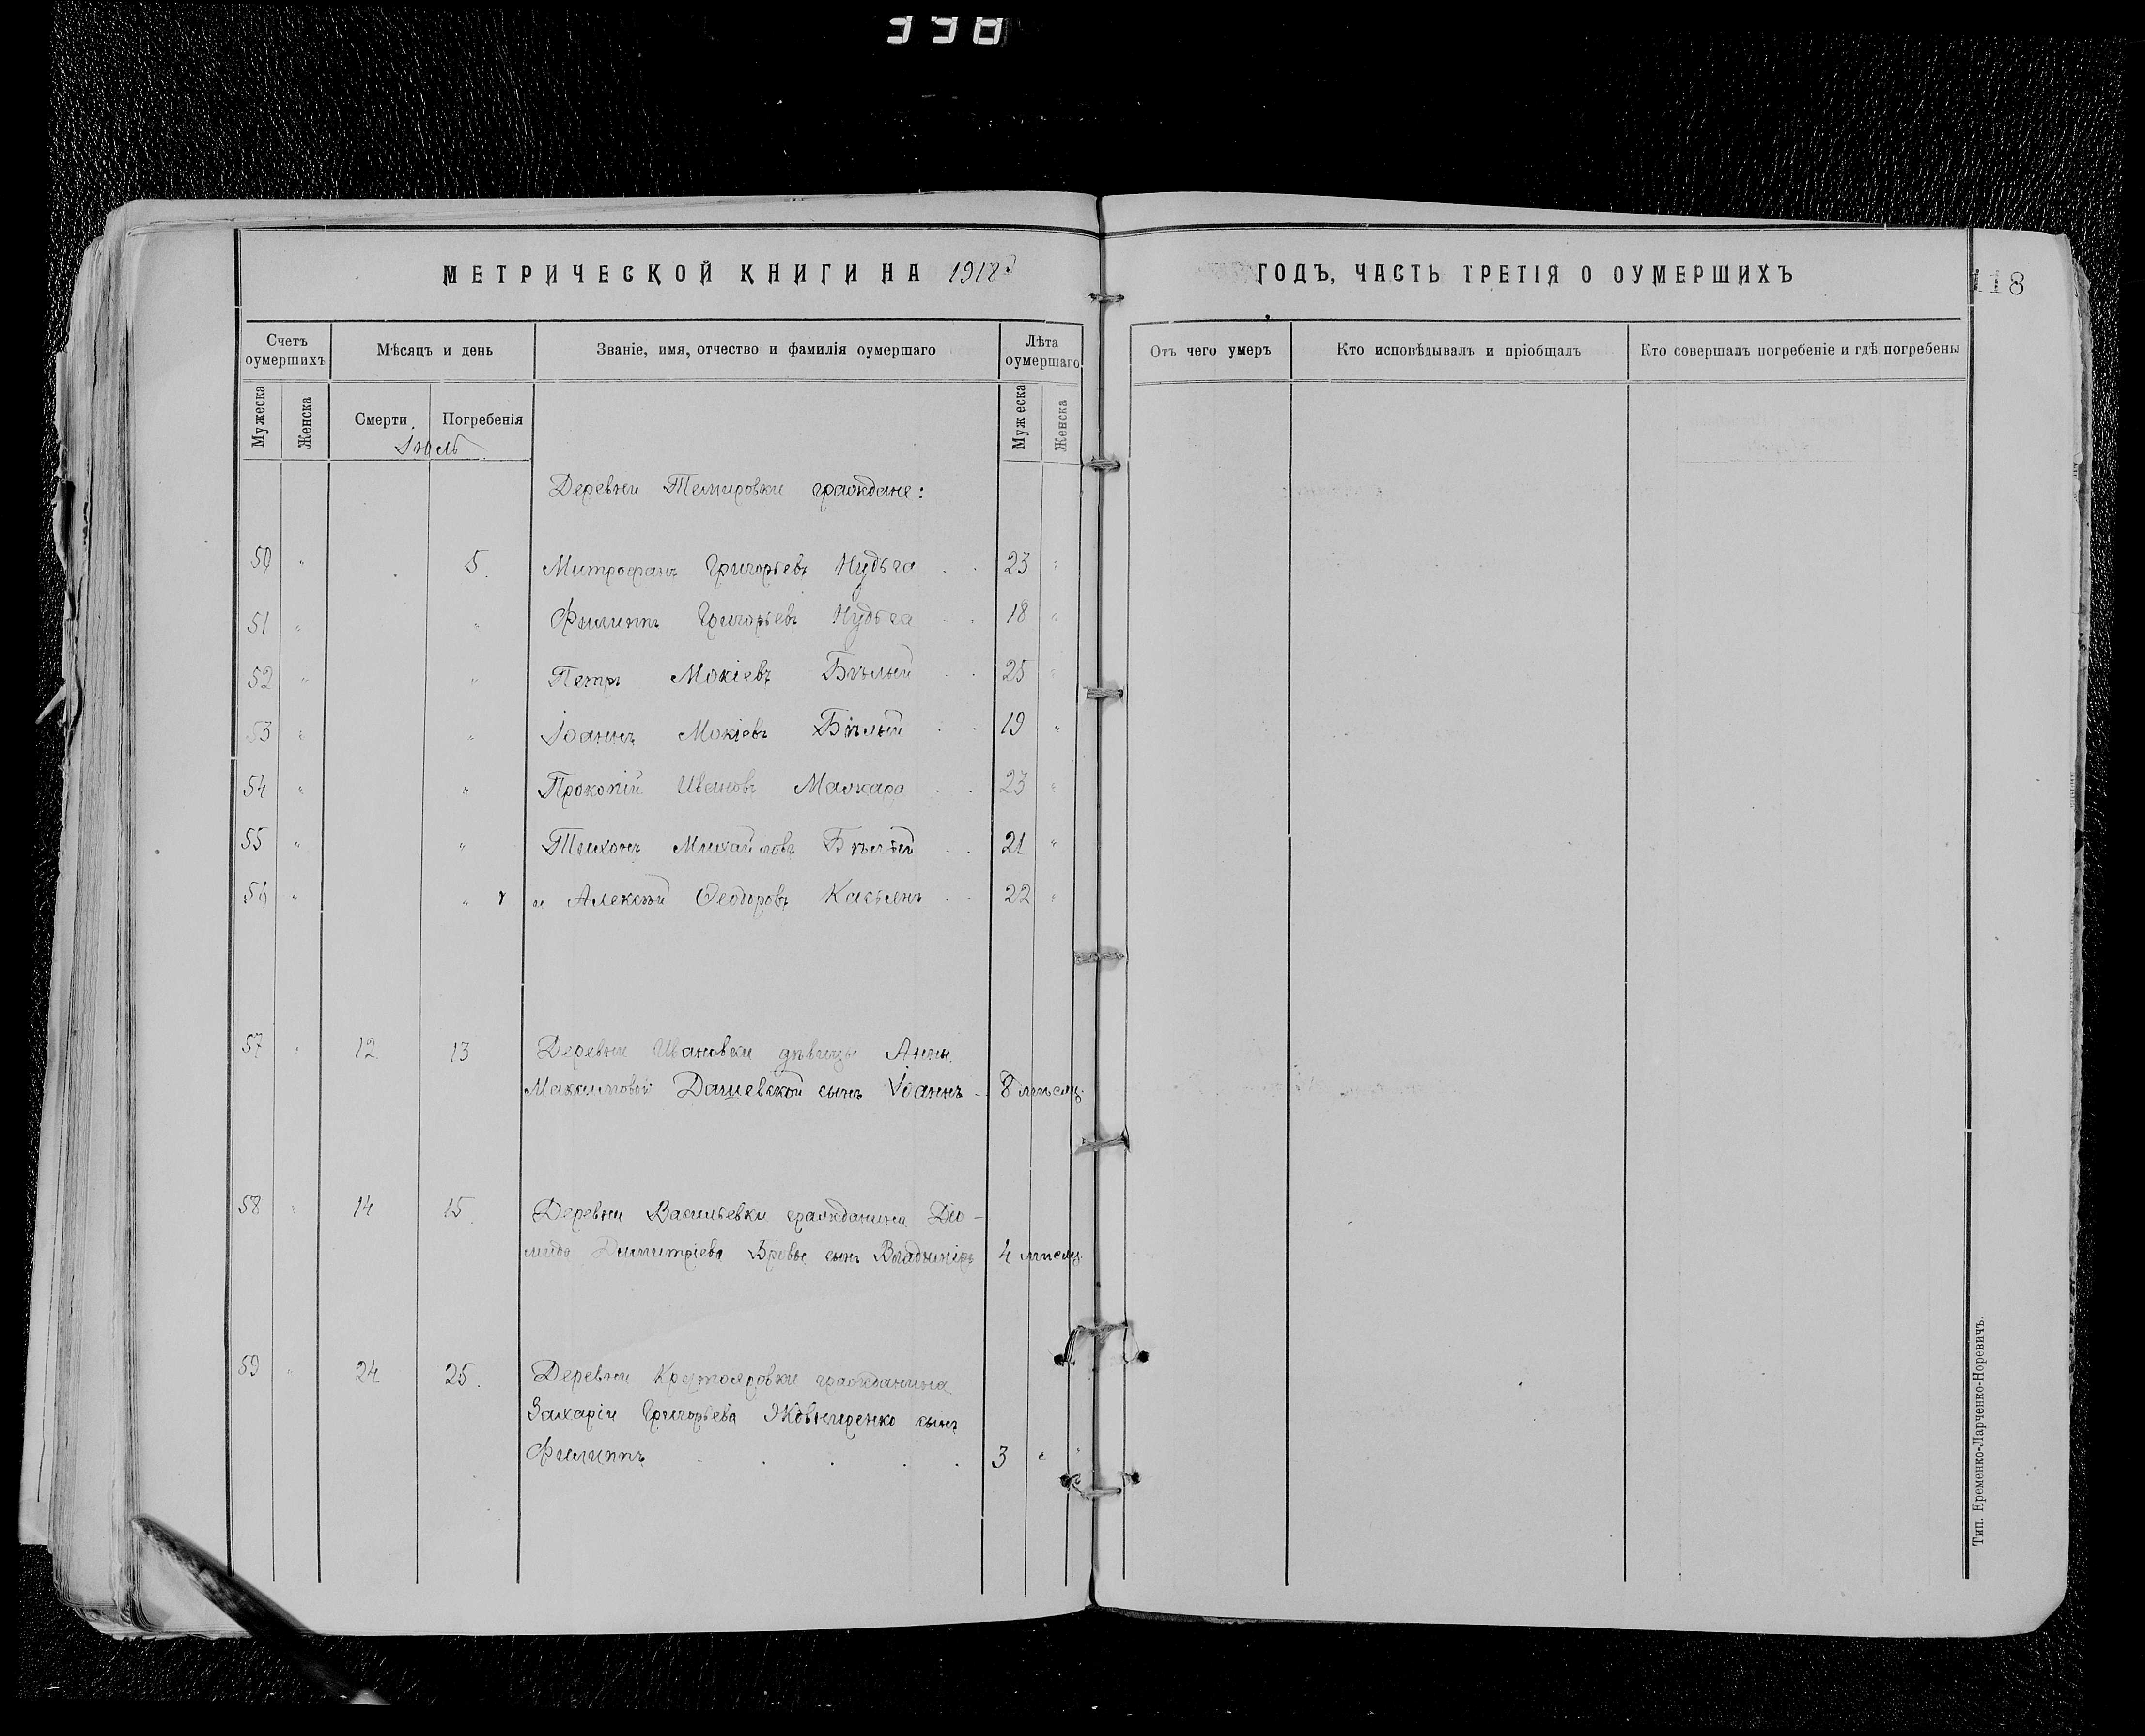 398
МЕТРИЧЕСКОЙ КНИГИ НА 1918
ГОДЪ, ЧАСТЬ ТРЕТІЯ О ОУМЕРШИХЪ
118
Счетъ оумершихъ
Мѣсяцъ и день
Званіе, имя, отчество и фамилія оумершаго
Лѣта оумершаго
Отъ чего умеръ
Кто исповѣдывалъ и пріобщалъ
Кто совершалъ погребеніе и гдѣ погребены
Мужеска
Женска
Смерти
Погребенія
Муж еска
Женска
Іюль
Деревни Темировки граждане:
50 " 5. Митрофанъ Григорьевъ Нудьга . . 23 "
51 " " Филиппъ Григорьевъ Нудьга . . 18 "
52 " " Петръ Мокіевъ Бѣлый . . 25 "
53 " " Іоаннъ Мокіевъ Бѣлый . . 19 "
54 " " Прокопій Ивановъ Мажара . . 23 "
55 " " Тихонъ Михайловъ Бѣлый . . 21 "
56 " " и Алексѣй Ѳеодоровъ Касьянъ . . 22 "
57 " 12 13 Деревни Ивановки дѣвицы Анны
Максимовой Дашевской сынъ Іоаннъ 8 мѣсяц.
58 " 14 15. Деревни Васильевки гражданина Діо-
мида Димитріева Бревы сынъ Владиміръ 4 мѣсяц.
59 " 24 25. Деревни гражданина
Захаріи Григорьева сынъ
Филиппъ . . . . . 3 "
Тип. Еременко-Ларченко-Норевичъ.